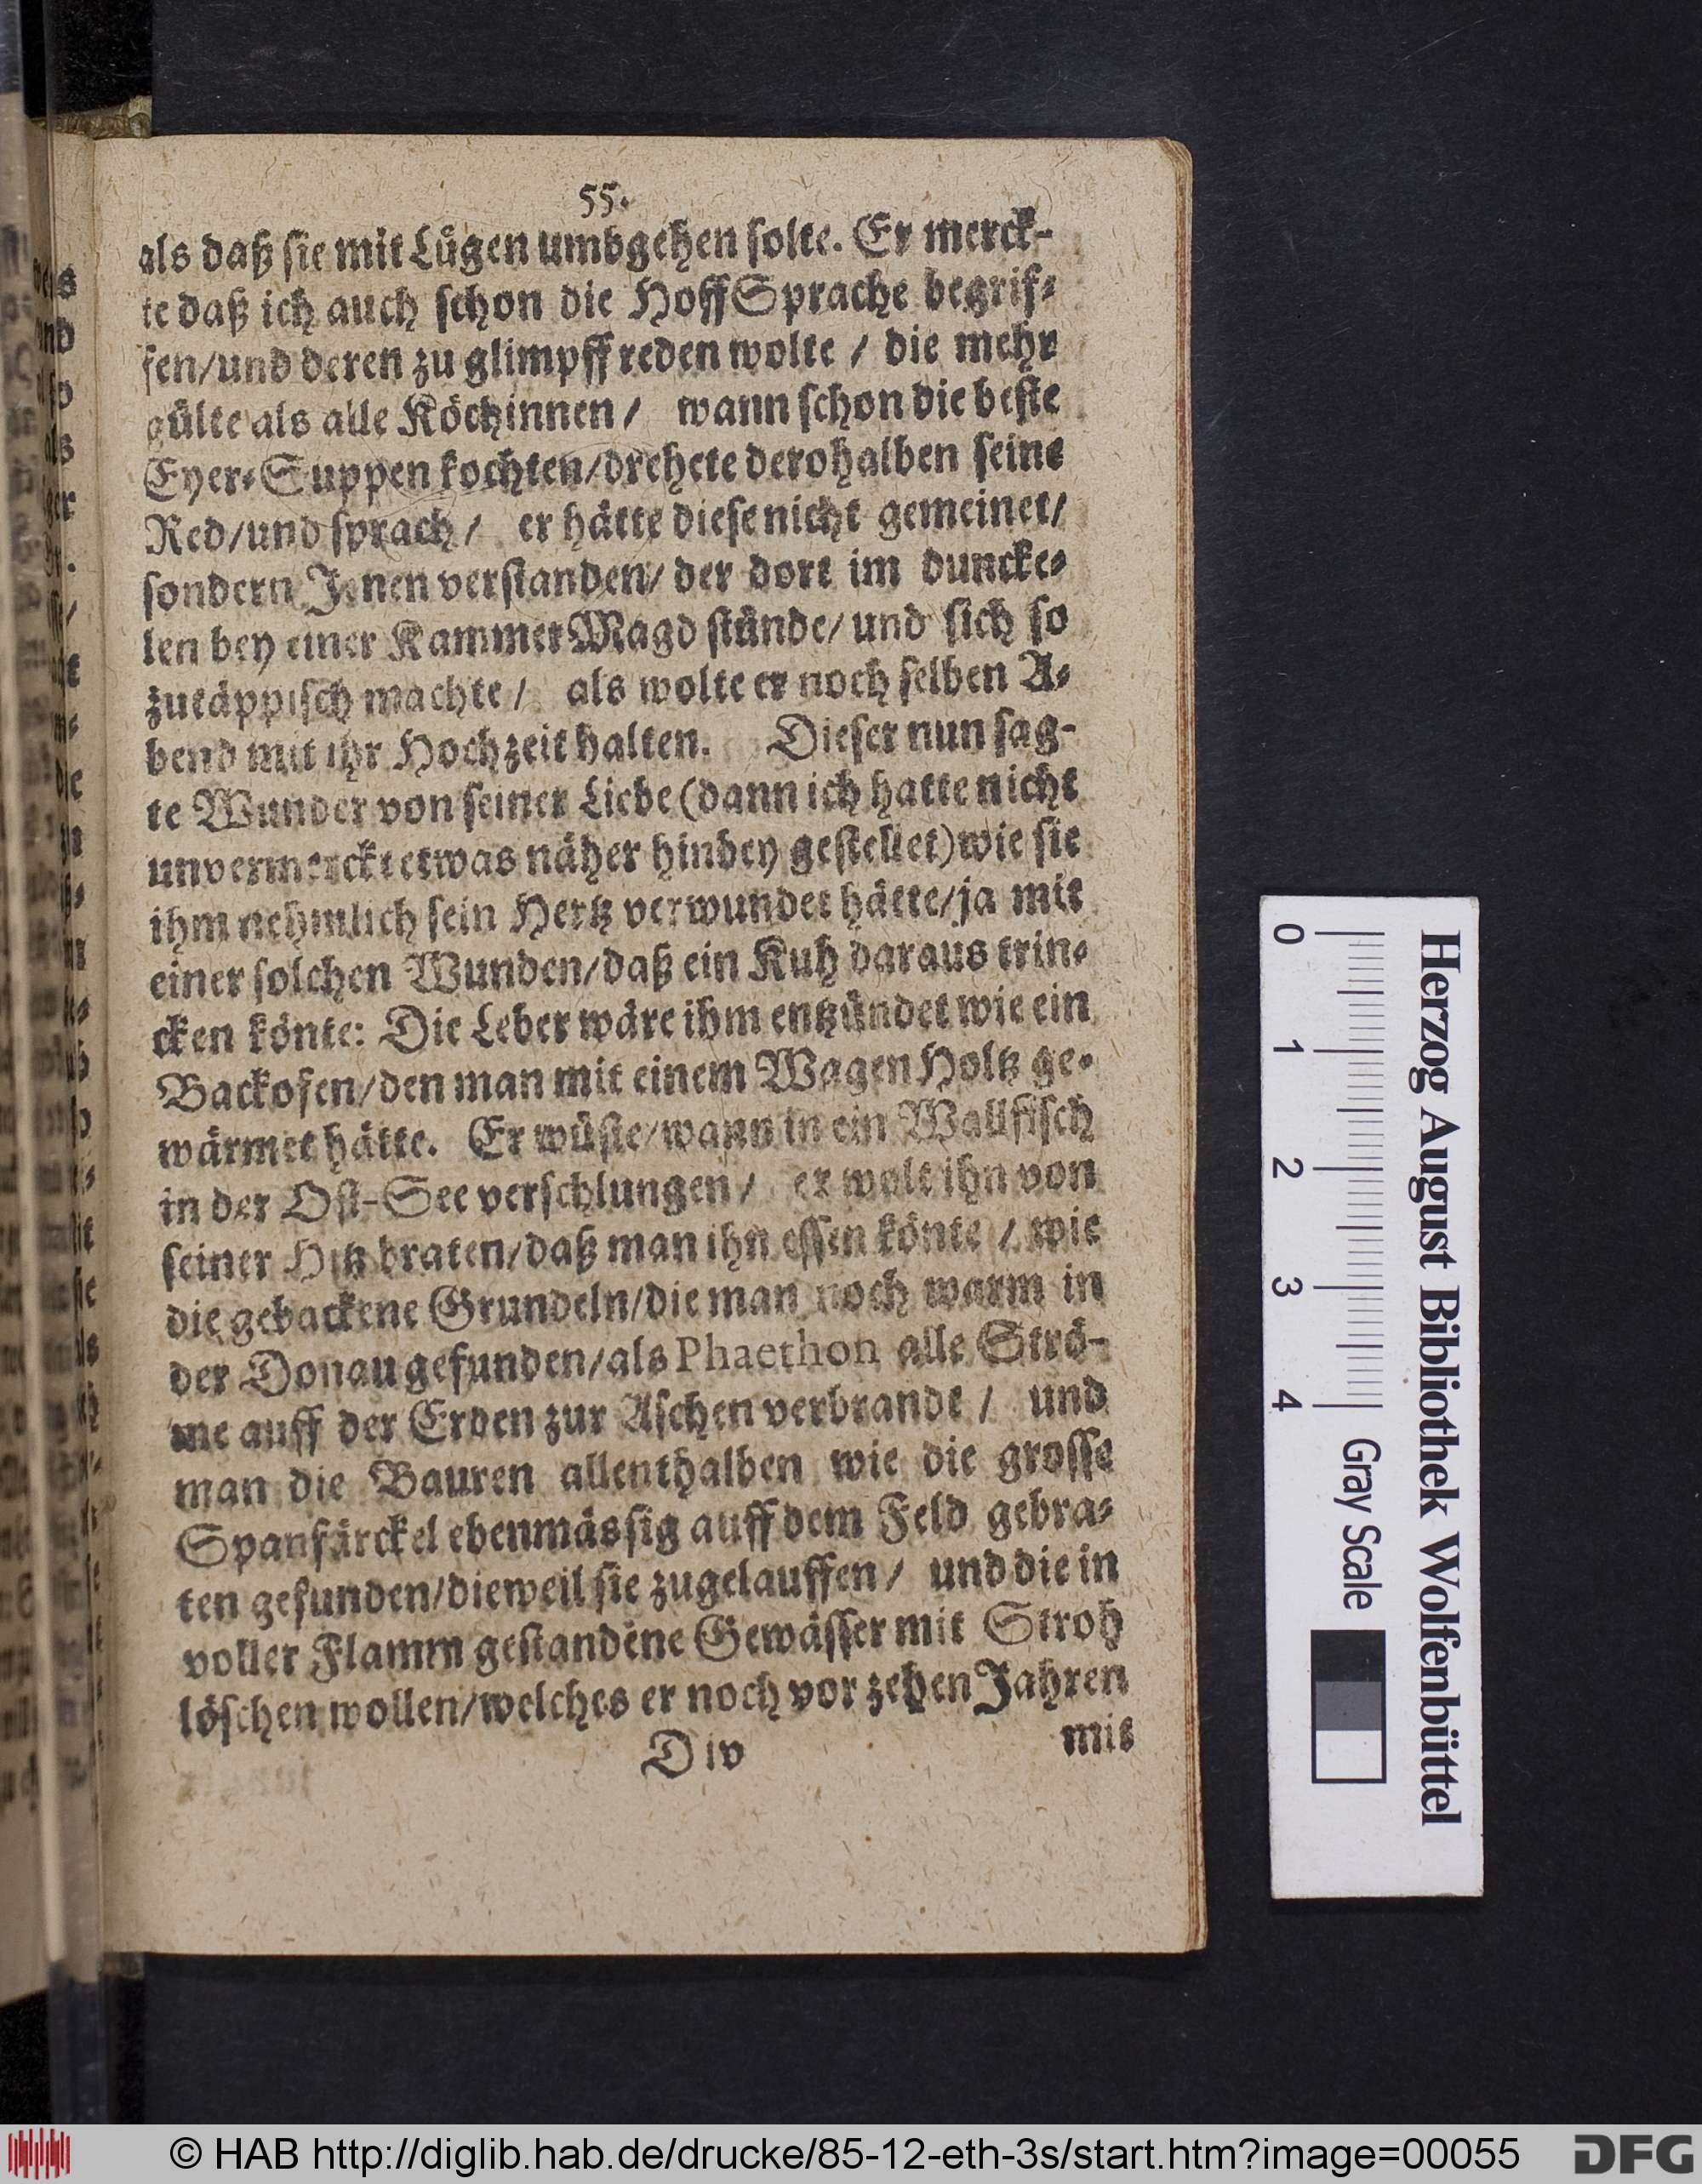 55.
als daß sie mit Lügen umbgehen solte. Er merck-
te daß ich auch schon die HoffSprache begrif-
fen/und deren zu glimpff reden wolte / die mehr
gülte als alle Köchinnen / wann schon die beste
Eyer-Suppen kochten/drehete derohalben seine
Red/und sprach / er hätte diese nicht gemeinet/
sondern Jenen verstanden/ der dort im duncke-
len bey einer KammerMagd stünde/ und sich so
zutäppisch machte / als wolte er noch selben A-
bend mit ihr Hochzeit halten. Dieser nun sag-
te Wunder von seiner Liebe (dann ich hatte nicht
unvermerckt etwas näher hinbey gestellet) wie sie
ihm nehmlich sein Hertz verwundet hätte/ja mit
einer solchen Wunden/daß ein Kuh daraus trin-
cken könte: Die Leber wäre ihm entzündet wie ein
Backofen/den man mit einem Wagen Holtz ge-
wärmet hätte. Er wüste/wann in ein Wallfisch
in der Ost-See verschlungen / er wolt ihn von
seiner Hitz braten/daß man ihn essen könte / wie
die gebackene Grundeln/die man noch warm in
der Donau gefunden/als Phaethon alle Strö-
me auff der Erden zur Aschen verbrandt / und
man die Bauren allenthalben wie die grosse
Spanfärckel ebenmässig auff dem Feld gebra-
ten gefunden/dieweil sie zugelauffen / und die in
voller Flamm gestandene Gewässer mit Stroh
löschen wollen/welches er noch vor zehen Jahren
D iv mit
Herzog August Bibliothek Wolfenbüttel
0 1 2 3 4 Gray Scale
© HAB http://diglib.hab.de/drucke/85-12-eth-3s/start.htm?image=00055
DFG